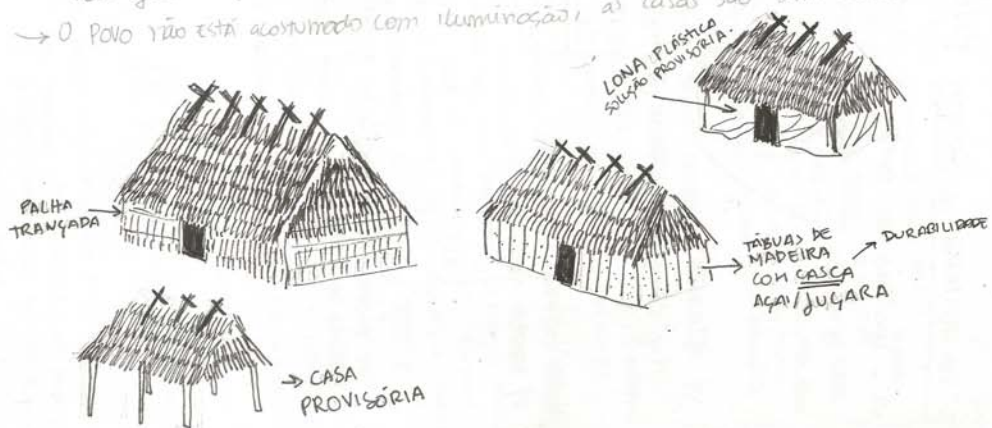 → O POVO NÃO ESTÁ ACOSTUMADO COM ILUMINAÇÃO, AS CASAS SÃO
LONA PLÁSTICA
SOLUÇÃO PROVISÓRIA.
PALHA
TRANÇADA
TÁBUAS DE
MADEIRA
COM CASCA
AÇAI/JUÇARA
DURABILIDADE
→ CASA
PROVISÓRIA